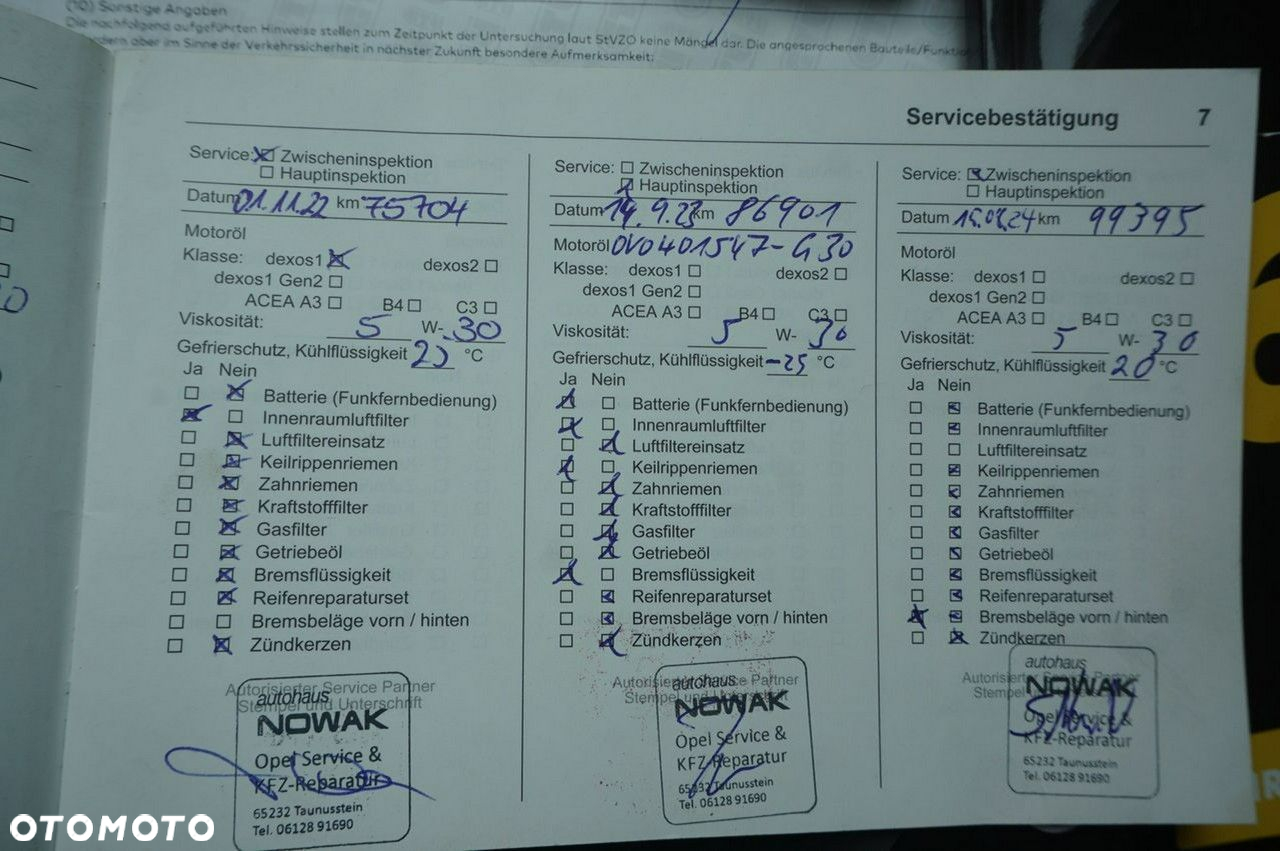 (10) Sonstige Angaben
Die nachfolgend aufgeführten Hinweise stellen zum Zeitpunkt der Untersuchung laut StVZO keine Mängel dar. Die angesprochenen Bauteile/Funktio
fordern aber im Sinne der Verkehrssicherheit in nächster Zukunft besondere Aufmerksamkeit:
Servicebestätigung 7
Service: Zwischeninspektion
Hauptinspektion
Datum 01.11.22 km 75704
Motoröl
Klasse: dexos1 dexos2
dexos1 Gen2
ACEA A3 B4 C3
Viskosität: 5 W- 30
Gefrierschutz, Kühlflüssigkeit 25 °C
Ja Nein
Batterie (Funkfernbedienung)
Innenraumluftfilter
Luftfiltereinsatz
Keilrippenriemen
Zahnriemen
Kraftstofffilter
Gasfilter
Getriebeöl
Bremsflüssigkeit
Reifenreparaturset
Bremsbeläge vorn / hinten
Zündkerzen
Autorisierter Service Partner
Stempel und Unterschrift
autohaus
NOWAK
Opel Service &
KFZ-Reparatur
65232 Taunusstein
Tel. 06128 91690
Service: Zwischeninspektion
Hauptinspektion
Datum 14.9.23 km 86901
Motoröl OV0401547-G30
Klasse: dexos1 dexos2
dexos1 Gen2
ACEA A3 B4 C3
Viskosität: 5 W- 30
Gefrierschutz, Kühlflüssigkeit -25 °C
Ja Nein
Batterie (Funkfernbedienung)
Innenraumluftfilter
Luftfiltereinsatz
Keilrippenriemen
Zahnriemen
Kraftstofffilter
Gasfilter
Getriebeöl
Bremsflüssigkeit
Reifenreparaturset
Bremsbeläge vorn / hinten
Zündkerzen
Autorisierter Service Partner
Stempel und Unterschrift
autohaus
NOWAK
Opel Service &
KFZ-Reparatur
65232 Taunusstein
Tel. 06128 91690
Service: Zwischeninspektion
Hauptinspektion
Datum km 99395
Motoröl
Klasse: dexos1 dexos2
dexos1 Gen2
ACEA A3 B4 C3
Viskosität: 5 W- 30
Gefrierschutz, Kühlflüssigkeit 20 °C
Ja Nein
Batterie (Funkfernbedienung)
Innenraumluftfilter
Luftfiltereinsatz
Keilrippenriemen
Zahnriemen
Kraftstofffilter
Gasfilter
Getriebeöl
Bremsflüssigkeit
Reifenreparaturset
Bremsbeläge vorn / hinten
Zündkerzen
Autorisierter Service Partner
Stempel
autohaus
NOWAK
Opel Service &
KFZ-Reparatur
65232 Taunusstein
Tel. 06128 91690
OTOMOTO